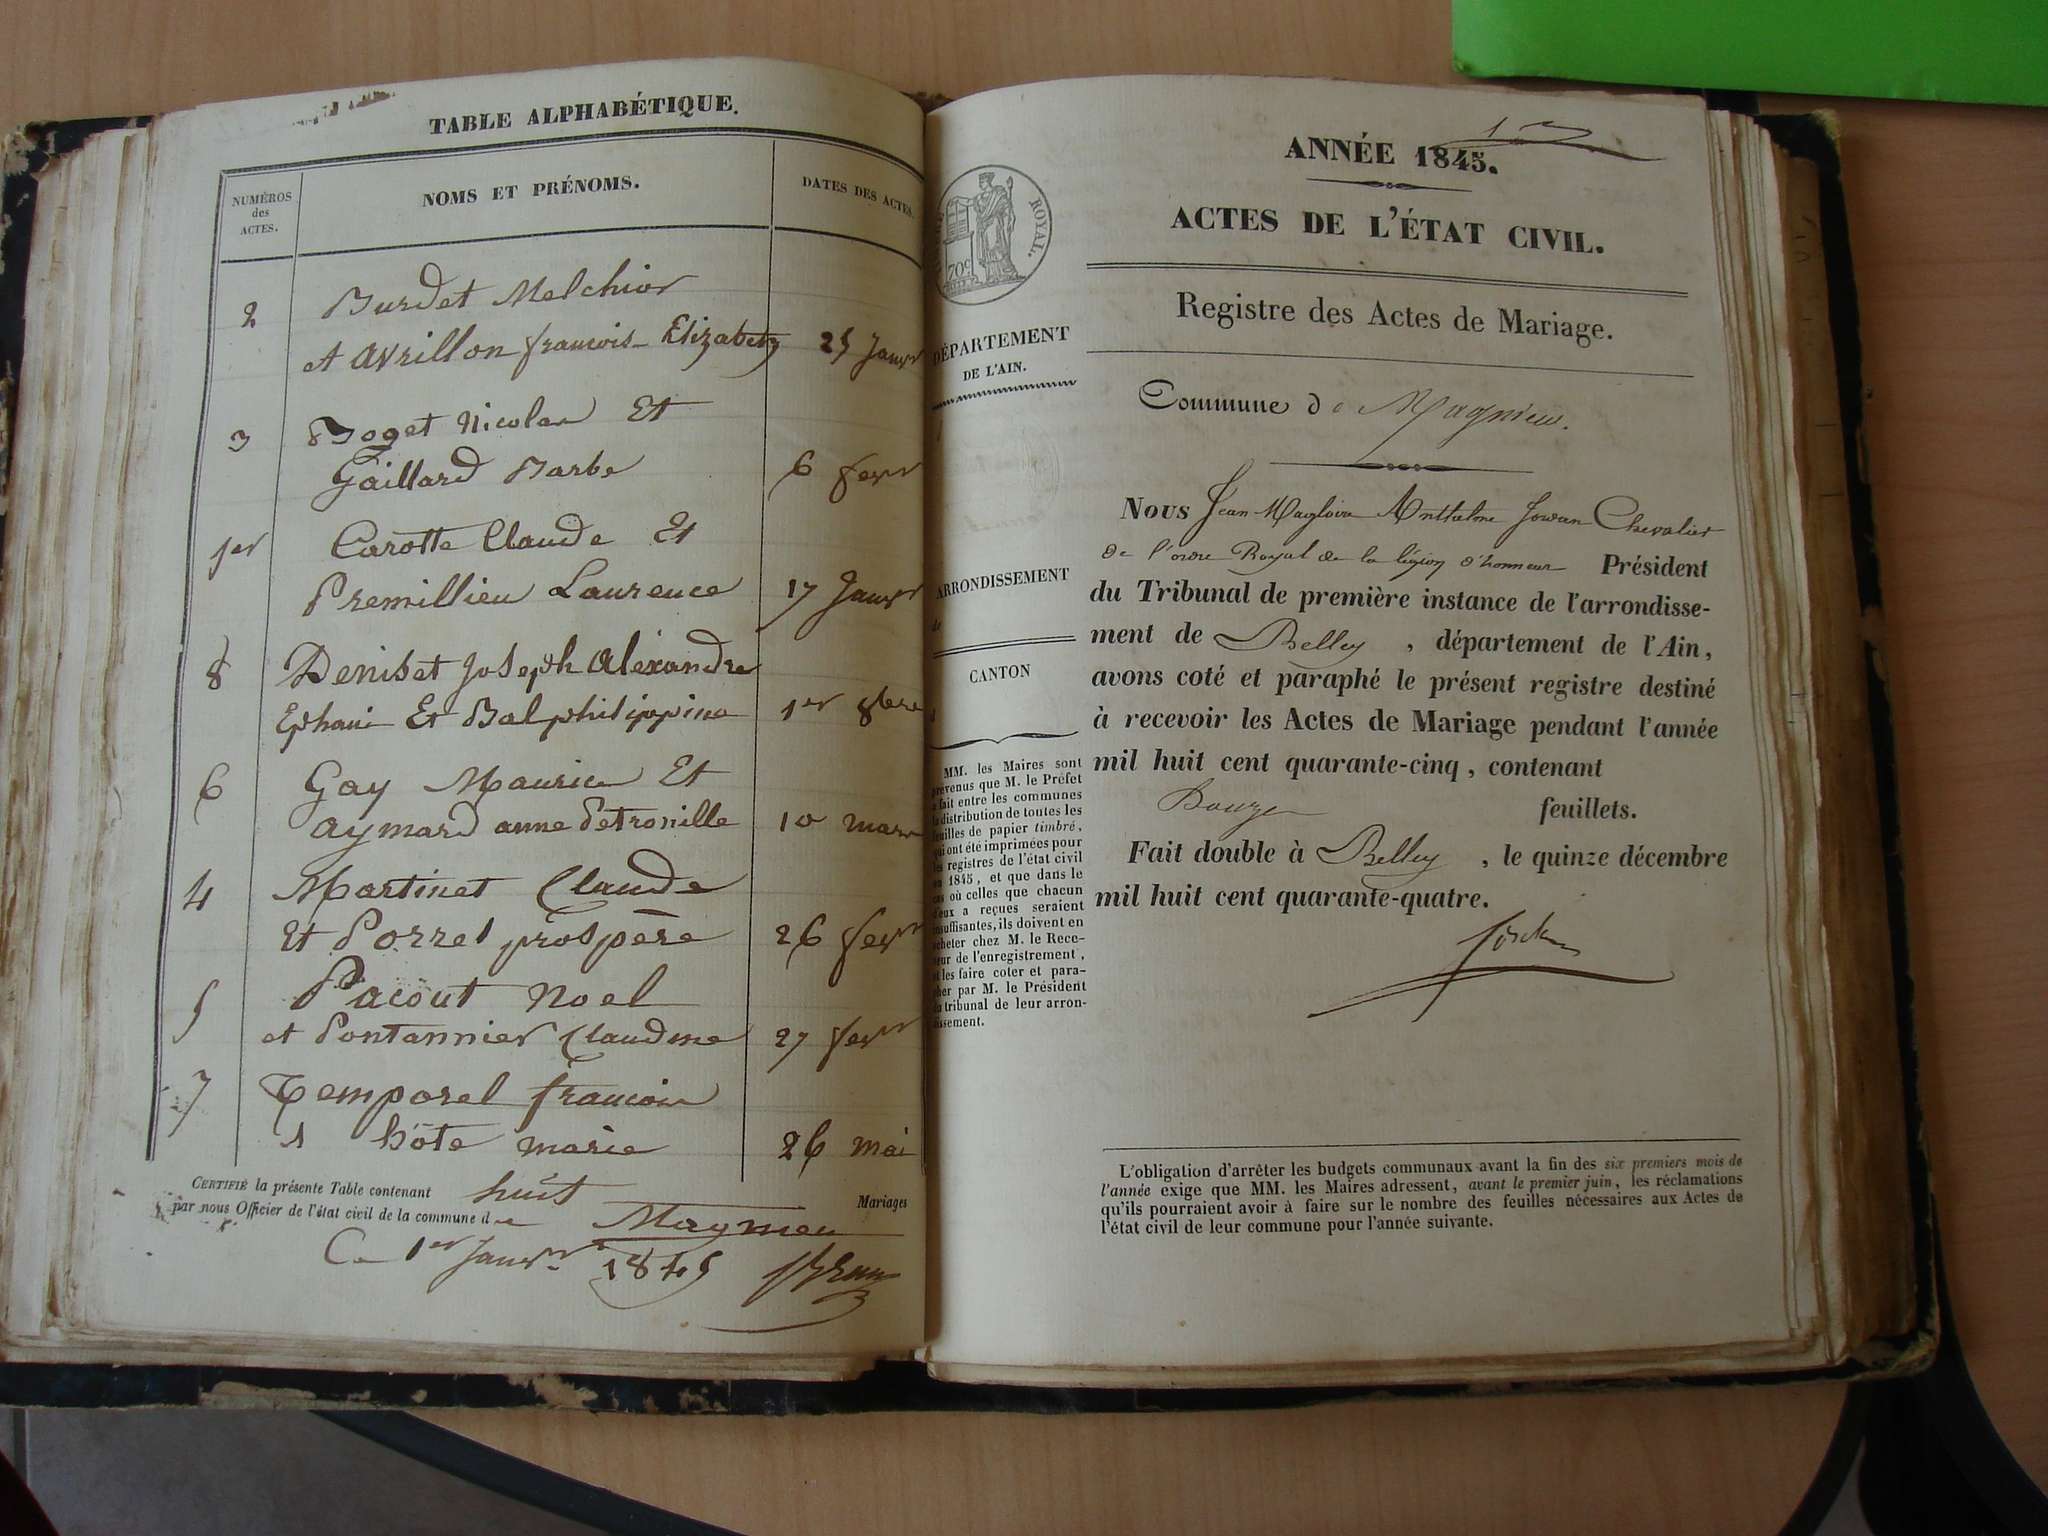 TABLE ALPHABÉTIQUE.
NUMÉROS
des
ACTES.
NOMS ET PRÉNOMS.
DATES DES ACTES.
2 Burdet Melchior
et Avrillon francois- Elizabeth 25 Janvr
3 Boget Nicolas Et
Gaillard Barbe 6 fevr
1er Carotte Claude Et
Premillieu Laurence 17 Janvr
8 Deniset Joseph Alexandre
Et Bal philippine 1er 8bre
6 Gay Maurice Et
aymard anne Petronille 10 mars
4 Martinet Claude
Et Porret prospère 26 fevr
5 Pacout Noel
et Pontannier Claudine 27 fevr
7 Temporel francois
hôte marie 26 mai
CERTIFIÉ la présente Table contenant huit Mariages
par nous Officier de l'état civil de la commune de Magnieu
Ce 1er Janvr 1845
1er
ANNÉE 1845.
ACTES DE L'ÉTAT CIVIL.
ROYAL.
70c
Registre des Actes de Mariage.
DÉPARTEMENT
DE L'AIN.
Commune de Magnieu.
Nous Jean Anthelme Chevalier
de l'ordre Royal de la légion d'honneur Président
du Tribunal de première instance de l'arrondisse-
ment de Belley , département de l'Ain,
avons coté et paraphé le présent registre destiné
à recevoir les Actes de Mariage pendant l'année
mil huit cent quarante-cinq, contenant
feuillets.
Fait double à Belley , le quinze décembre
mil huit cent quarante-quatre.
ARRONDISSEMENT
de
CANTON
d
MM. les Maires sont
prévenus que M. le Préfet
a fait entre les communes
la distribution de toutes les
feuilles de papier timbré,
qui ont été imprimées pour
les registres de l'état civil
en 1845, et que dans le
cas où celles que chacun
d'eux a reçues seraient
insuffisantes, ils doivent en
acheter chez M. le Rece-
veur de l'enregistrement,
et les faire coter et para-
pher par M. le Président
du tribunal de leur arron-
dissement.
L'obligation d'arrêter les budgets communaux avant la fin des six premiers mois de
l'année exige que MM. les Maires adressent, avant le premier juin, les réclamations
qu'ils pourraient avoir à faire sur le nombre des feuilles nécessaires aux Actes de
l'état civil de leur commune pour l'année suivante.